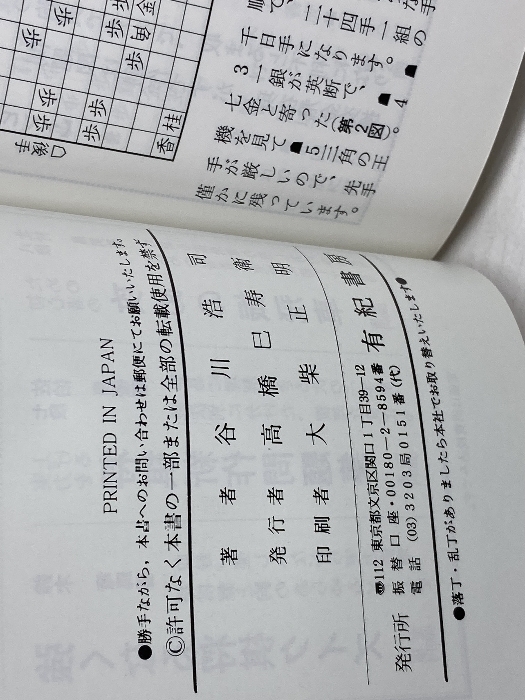 千日手になります。
3一銀が英断で、☗4
七金と寄った(第2図)。
機を見て☗5三角の王
手が厳しいので、先手
僅かに残っています。
歩
歩
歩
歩歩
香桂
PRINTED IN JAPAN
●勝手ながら、本書へのお問い合わせは郵便にてお願いいたします。
©許可なく本書の一部または全部の転載使用を禁ず
著者 谷川浩司
発行者 高橋巳寿衛
印刷者 大柴正明
発行所 有紀書房
〠112 東京都文京区関口1丁目39−12
振替口座・00180−2−8594番
電話 (03)3203局0151番(代)
●落丁・乱丁がありましたら本社でお取り替えいたします●